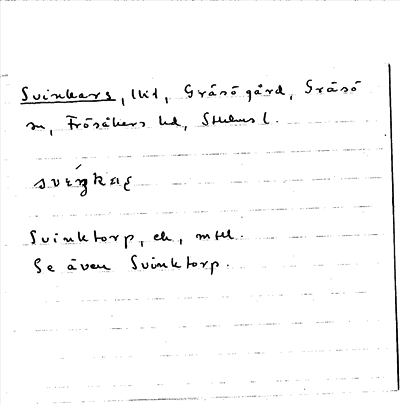 Svinkars, lkt, Gräsö gård, Gräsö
sn, Frösåkers hd, Sthlms l.
Svinktorp, ek, mtl.
Se även Svinktorp.